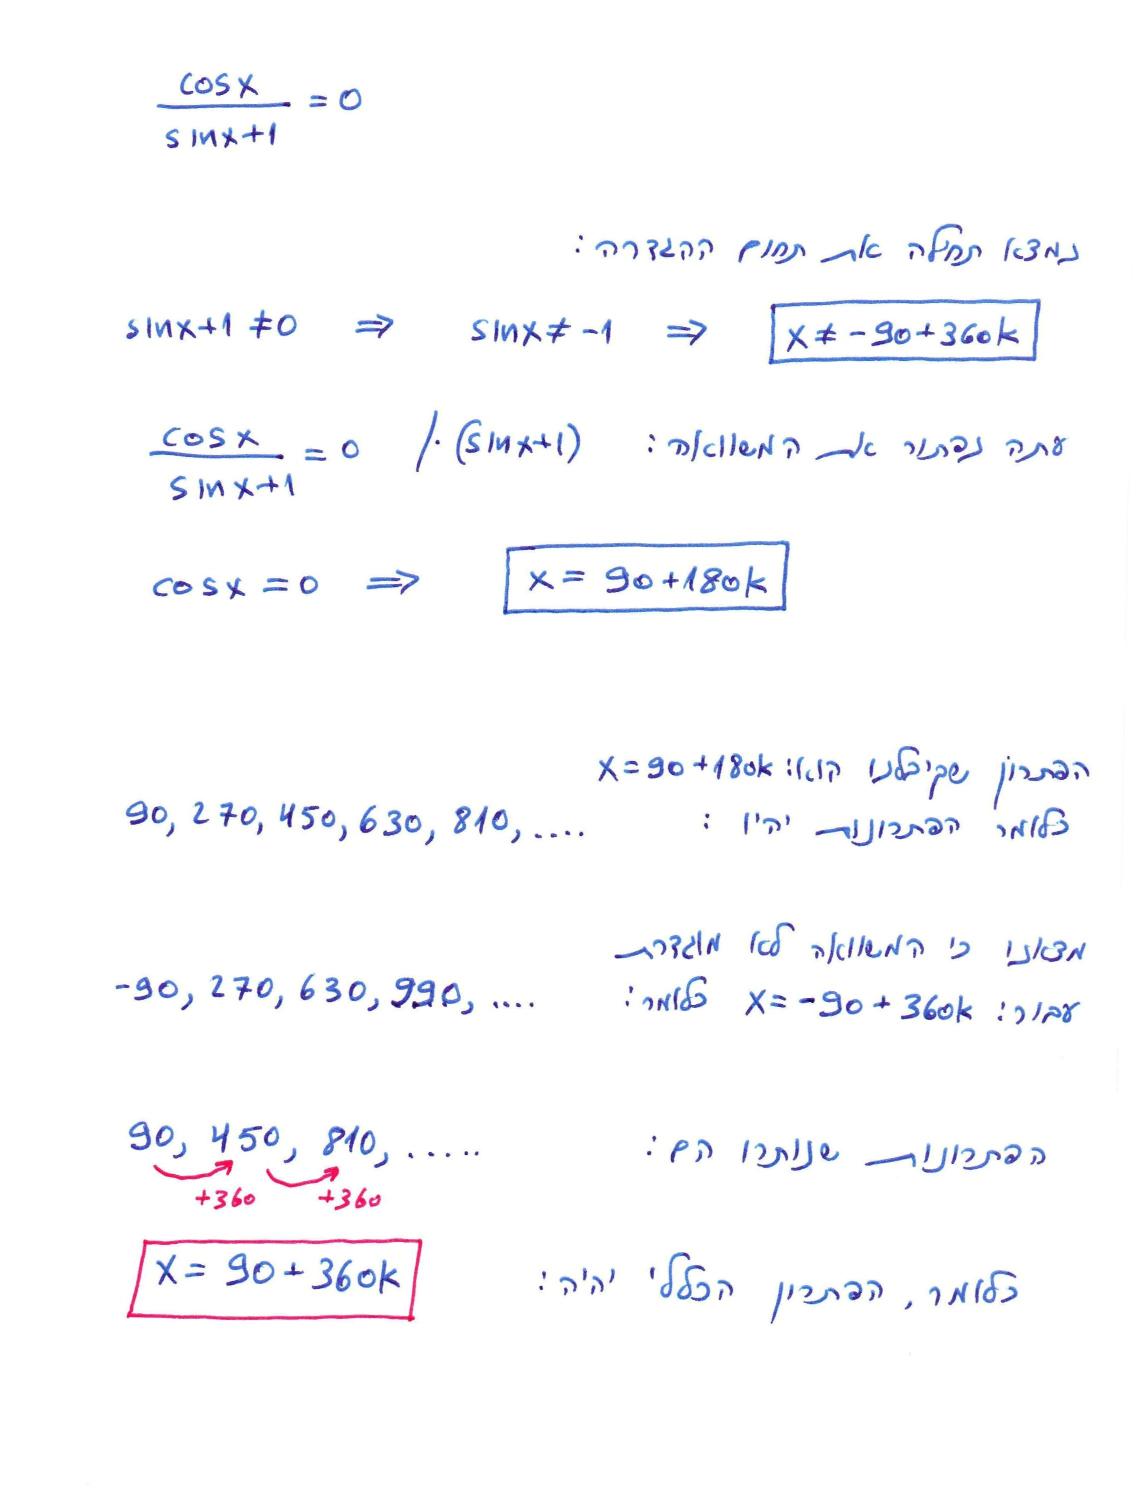 cosx
sinx+1 = 0
נמצא תחילה את תחום ההגדרה:
sinx+1 ≠0 ⇒ sinx≠ -1 ⇒ x ≠ -90+360k
עתה נפתור את המשוואה:
cosx
sinx+1 = 0 /·(sinx+1)
cosx=0 ⇒ x= 90+180k
הפתרון שקיבלנו הוא: x=90+180k
כלומר הפתרונות יהיו : 90, 270, 450, 630, 810, ....
מצאנו כי המשוואה לא מוגדרת
עבור: x= -90+360k כלומר: -90, 270, 630, 990, ....
הפתרונות שנותרו הם: 90, 450, 810, .....
+360 +360
כלומר, הפתרון הכללי יהיה: x= 90+360k